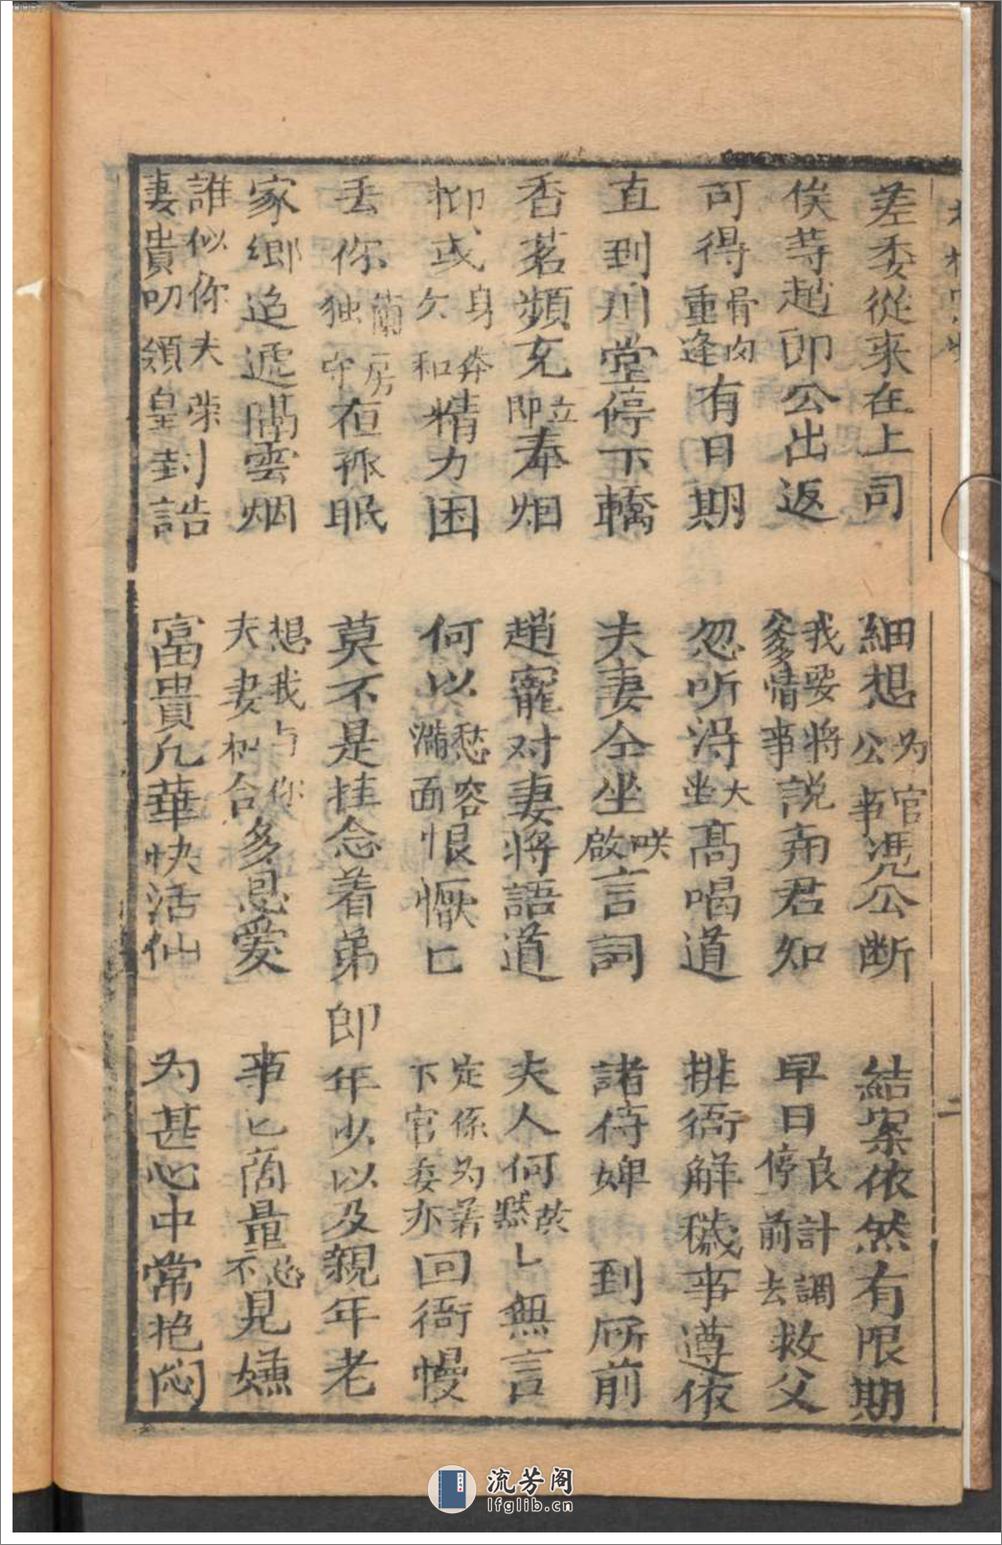 差委從來在上司 細想为官公事馮公断 結案依然有限期
俟等趙郎公出返 我要將爹情事說甭君知 早日良計調停前去救父
可得骨肉重逢有日期 忽听淂大坐高喝道 排衙解穢事遵依
直到川堂停下轎 夫妻仝坐咲啟言詞 諸侍婢 到所前
香茗頻充立即奉烟 趙寵对妻將語道 夫人何故默匕無言
抑或身奔欠和精力困 何以愁容滿面恨懨匕 定係为著下官委亦回衙慢
丢你蘭房独守在孤眠 莫不是挂念着弟郎年少以及親年老
家鄉迢遞隔雲烟 想我与你夫妻和合多恩愛 事匕商量不忍見嫌
誰似你夫荣妻貴叨領皇封誥 富貴九華快活仙 为甚心中常抱悶
二
流芳阁
lfglib.cn